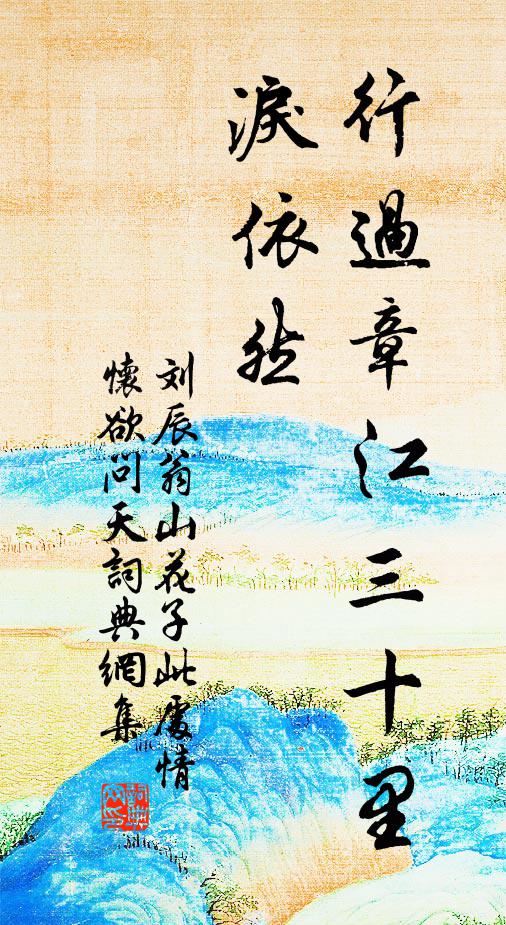 行過章江三十里
淚依然
刘辰翁山花子此處情
懷欲问天詞典網集